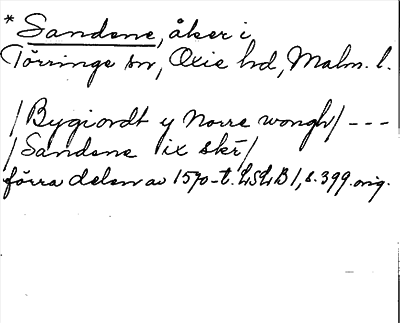 * Sandene, åker i
Törringe sn, Oxie hd, Malm. l.
/Bygiordt y Norre wongh/ ---
/Sandene ix skr/
förra delen av 1570-t. LSLB 1, s. 399. orig.